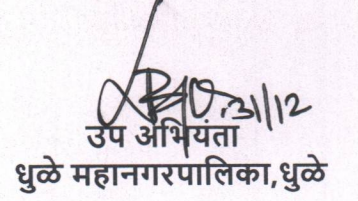 31/12
उप अभियंता
धुळे महानगरपालिका,धुळे